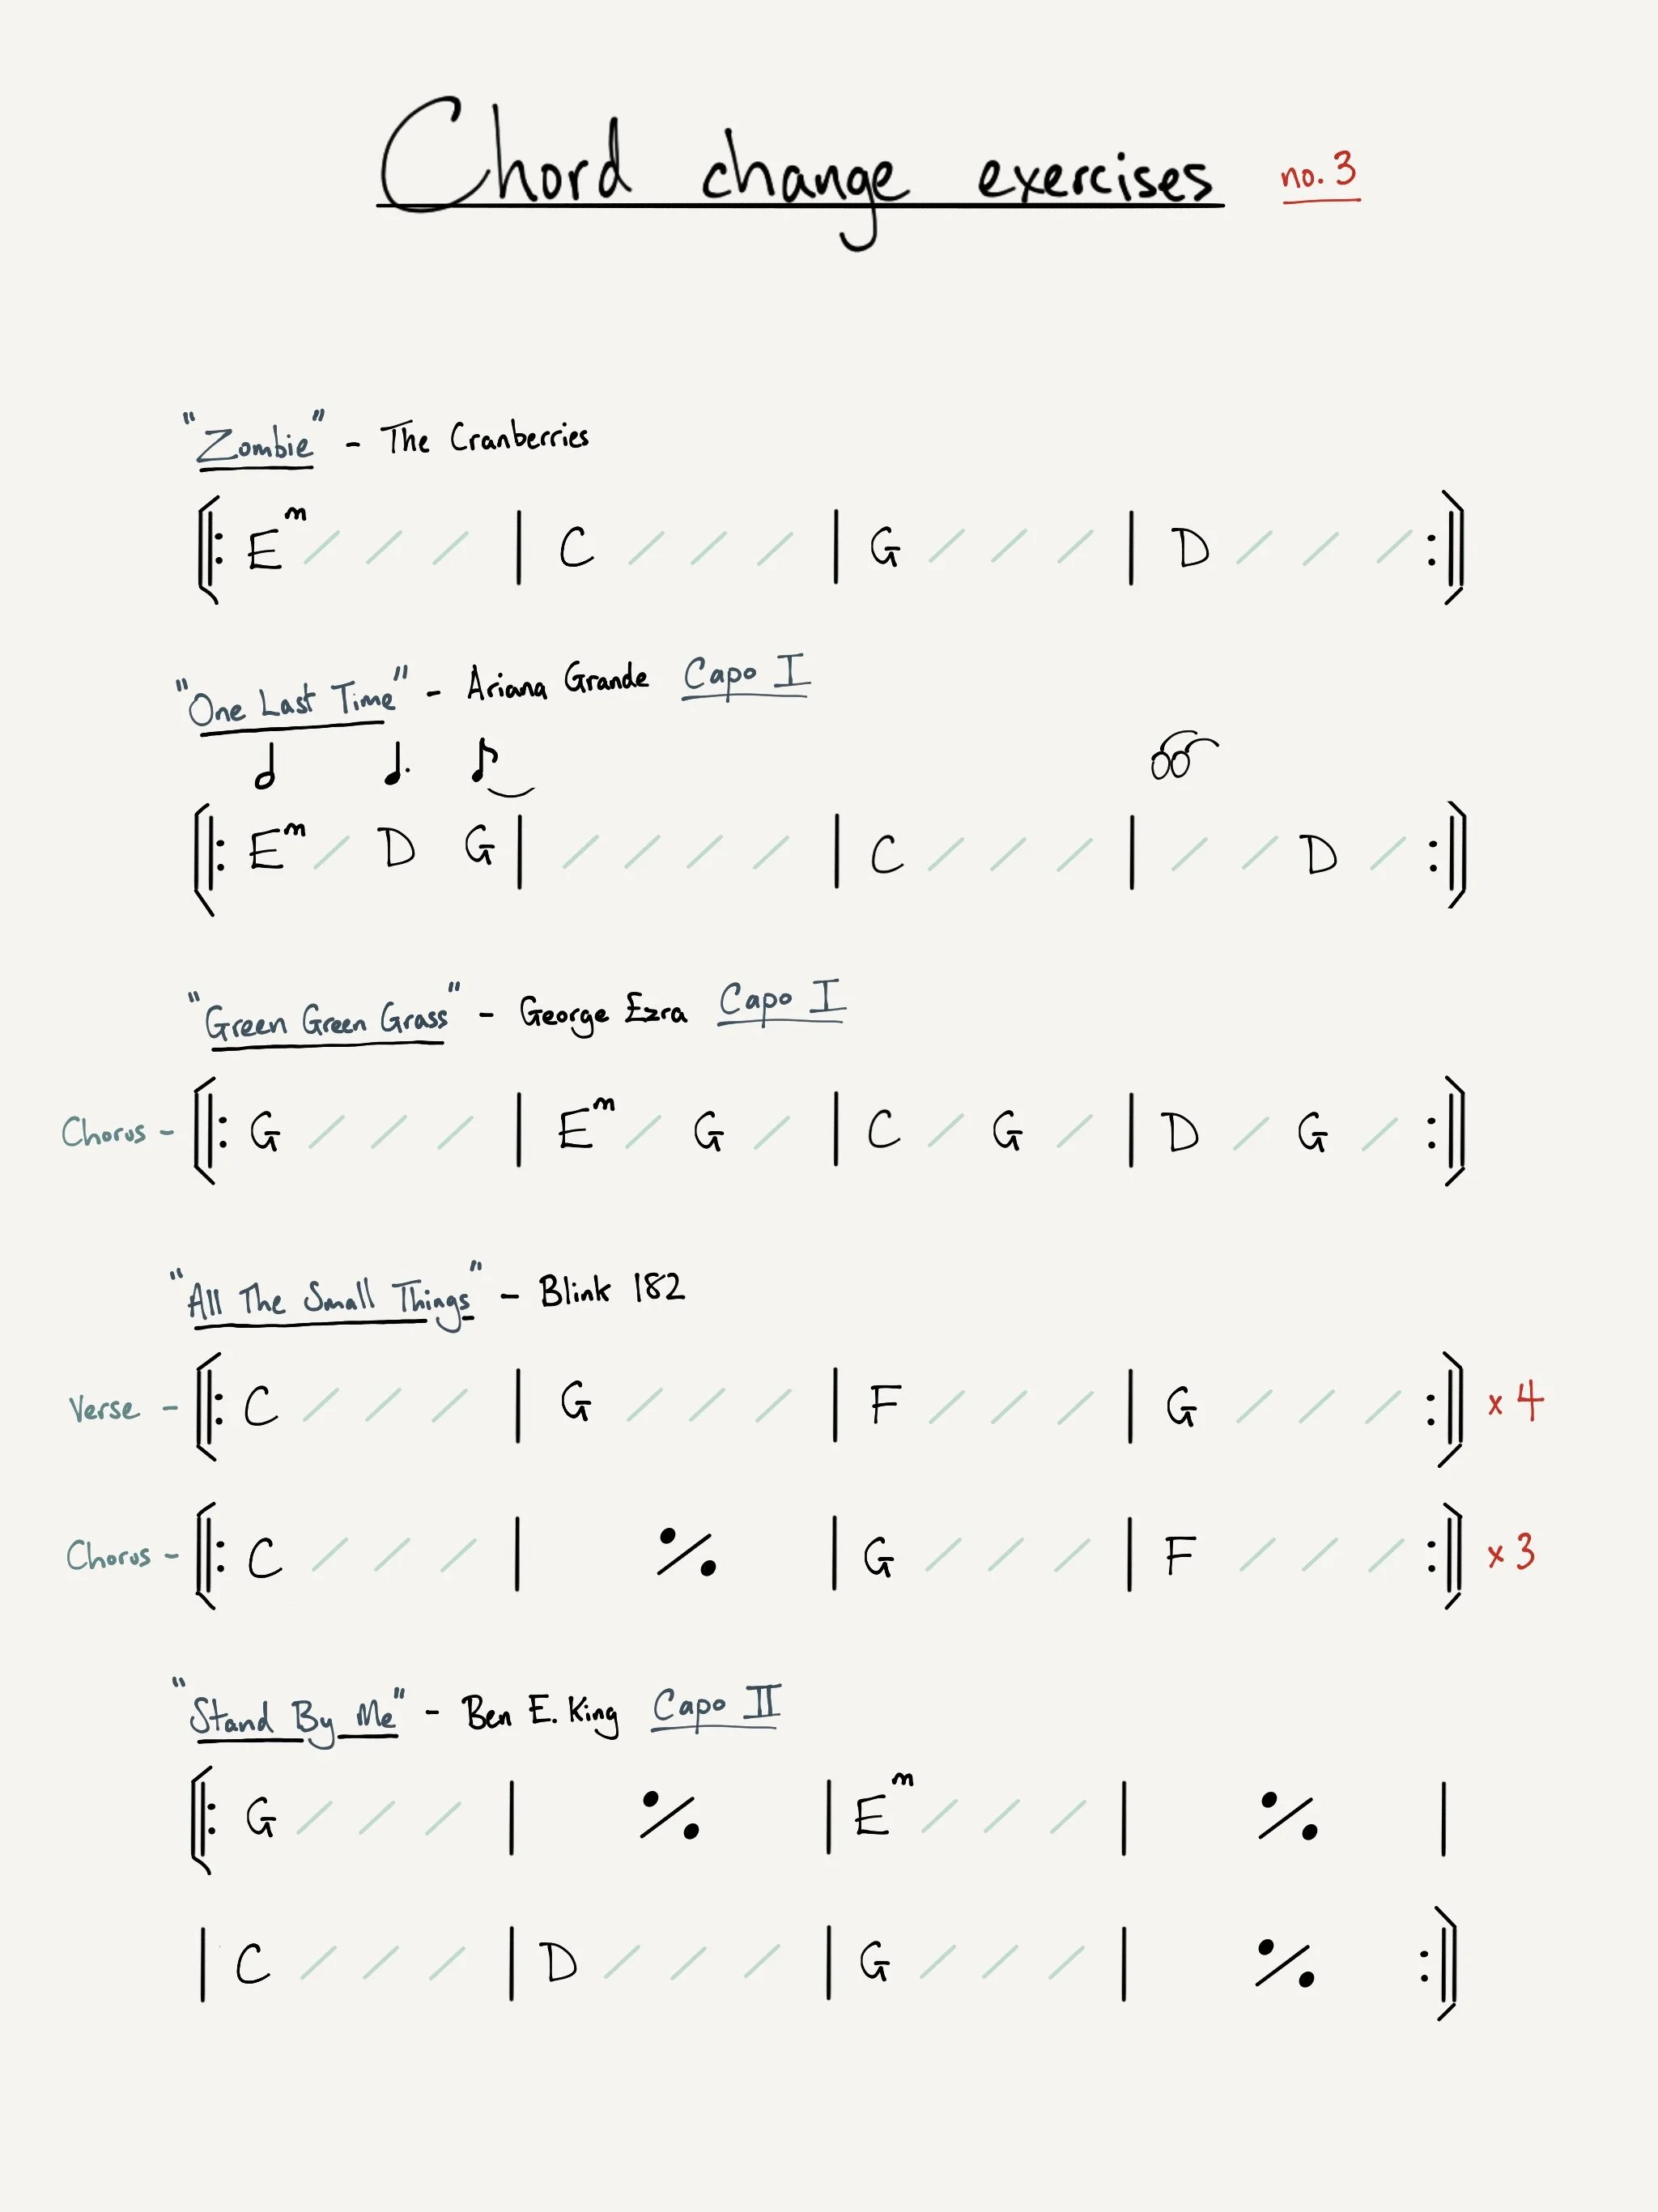 Chord change exercises no. 3
"Zombie" - The Cranberries
𝄆 Em / / / | C / / / | G / / / | D / / / 𝄇
"One Last Time" - Ariana Grande Capo I
𝅗𝅥 ♩. ♪
𝄆 Em / D G | / / / / | C / / / | / / D / 𝄇
"Green Green Grass" - George Ezra Capo I
Chorus - 𝄆 G / / / | Em / G / | C / G / | D / G / 𝄇
"All The Small Things" - Blink 182
Verse - 𝄆 C / / / | G / / / | F / / / | G / / / 𝄇 x 4
Chorus - 𝄆 C / / / | 𝄎 | G / / / | F / / / 𝄇 x 3
"Stand By Me" - Ben E. King Capo II
𝄆 G / / / | 𝄎 | Em / / / | 𝄎 |
| C / / / | D / / / | G / / / | 𝄎 𝄇